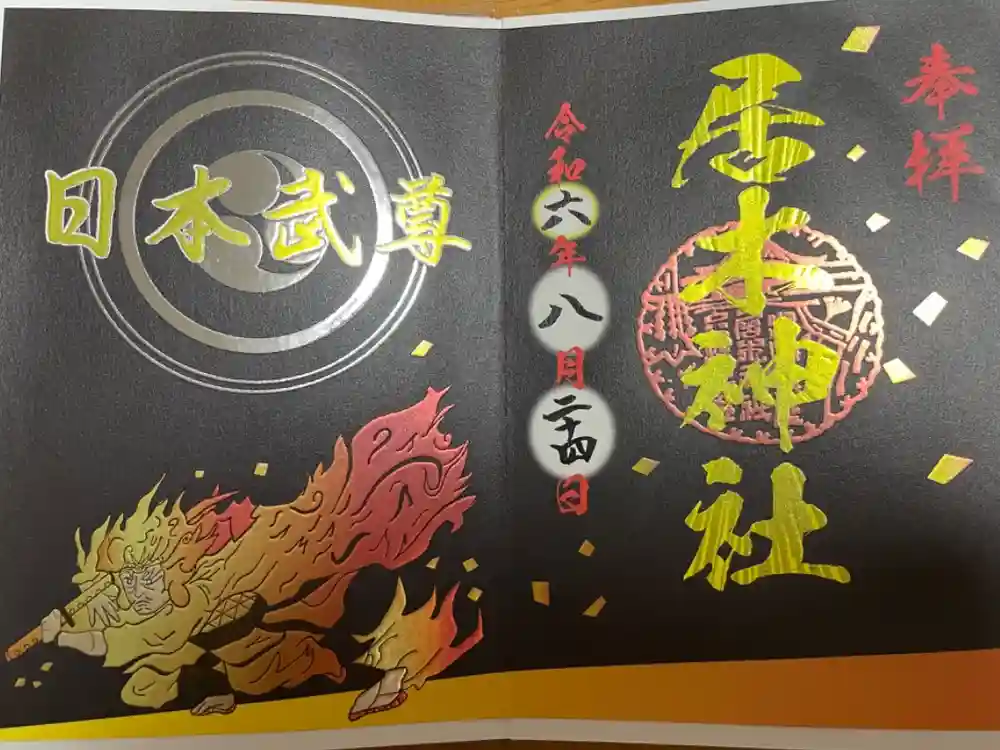 奉拝
居木神社
令和六年八月二十四日
日本武尊